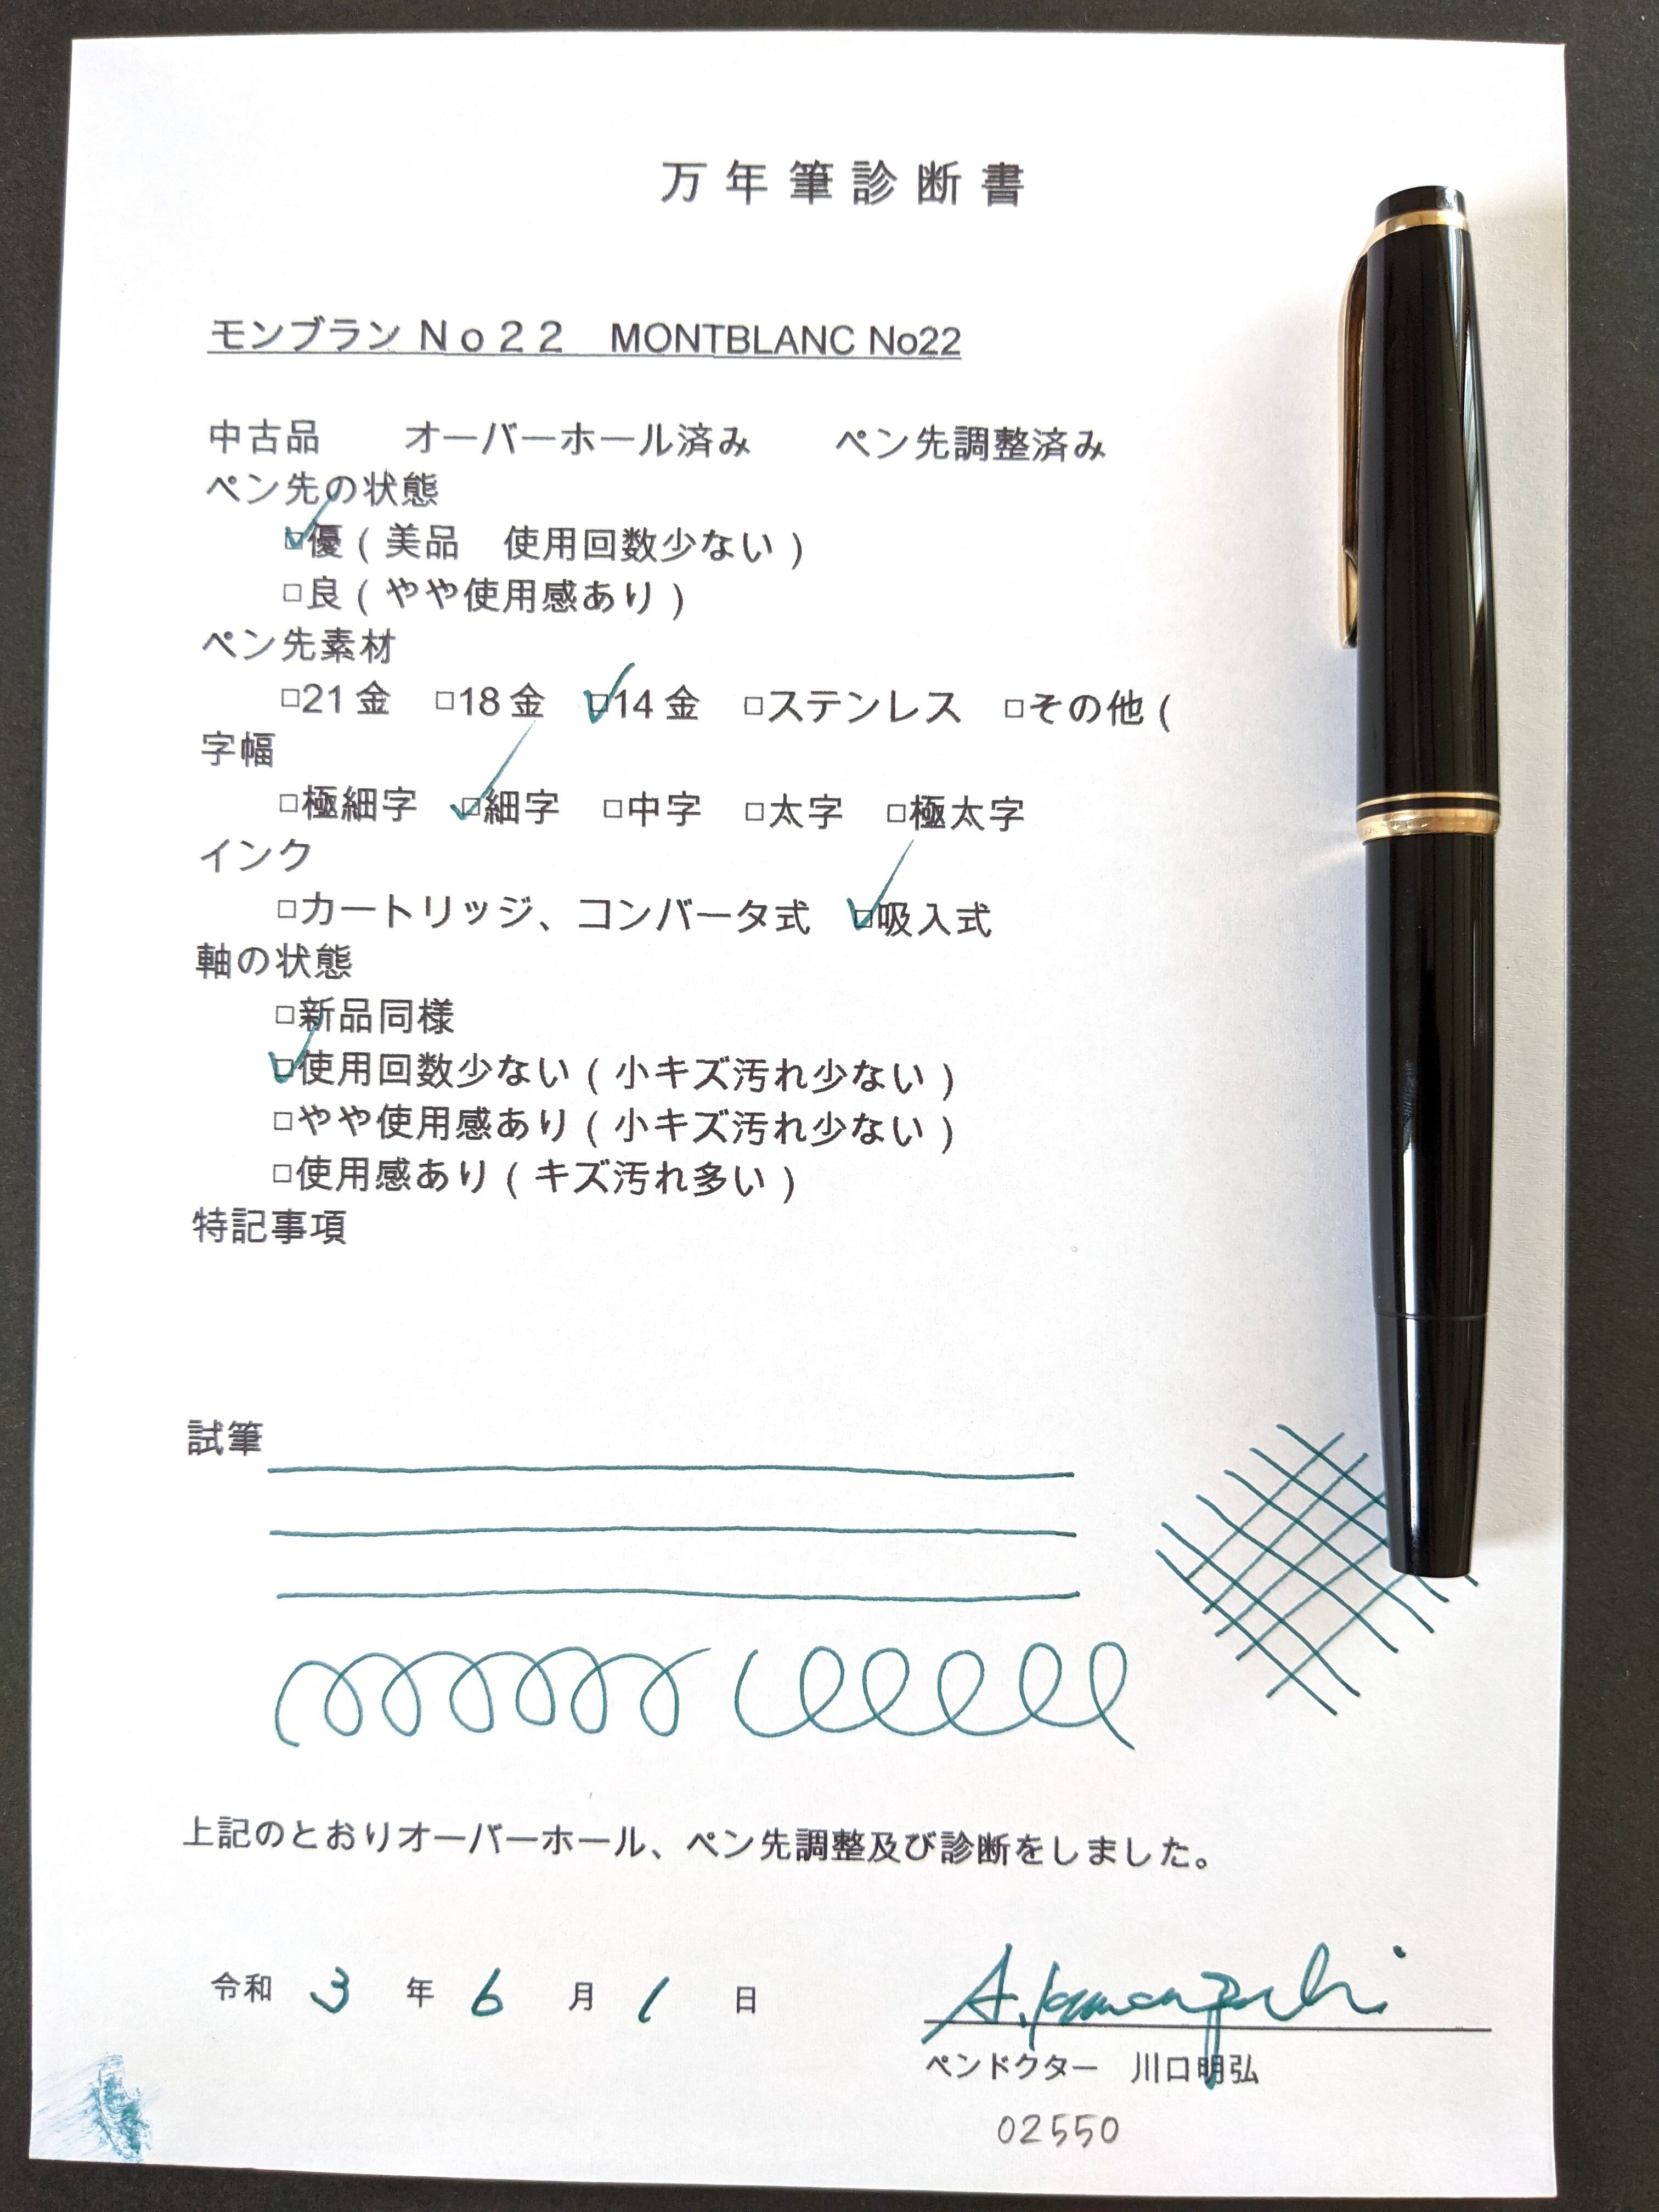 万年筆診断書
モンブランNo22 MONTBLANC No22
中古品 オーバーホール済み ペン先調整済み
ペン先の状態
□優(美品 使用回数少ない)
□良(やや使用感あり)
ペン先素材
□21金 □18金 □14金 □ステンレス □その他(
字幅
□極細字 □細字 □中字 □太字 □極太字
インク
□カートリッジ、コンバータ式 □吸入式
軸の状態
□新品同様
□使用回数少ない(小キズ汚れ少ない)
□やや使用感あり(小キズ汚れ少ない)
□使用感あり(キズ汚れ多い)
特記事項
試筆
上記のとおりオーバーホール、ペン先調整及び診断をしました。
令和 3 年 6 月 1 日
A.Kawaguchi
ペンドクター 川口明弘
02550